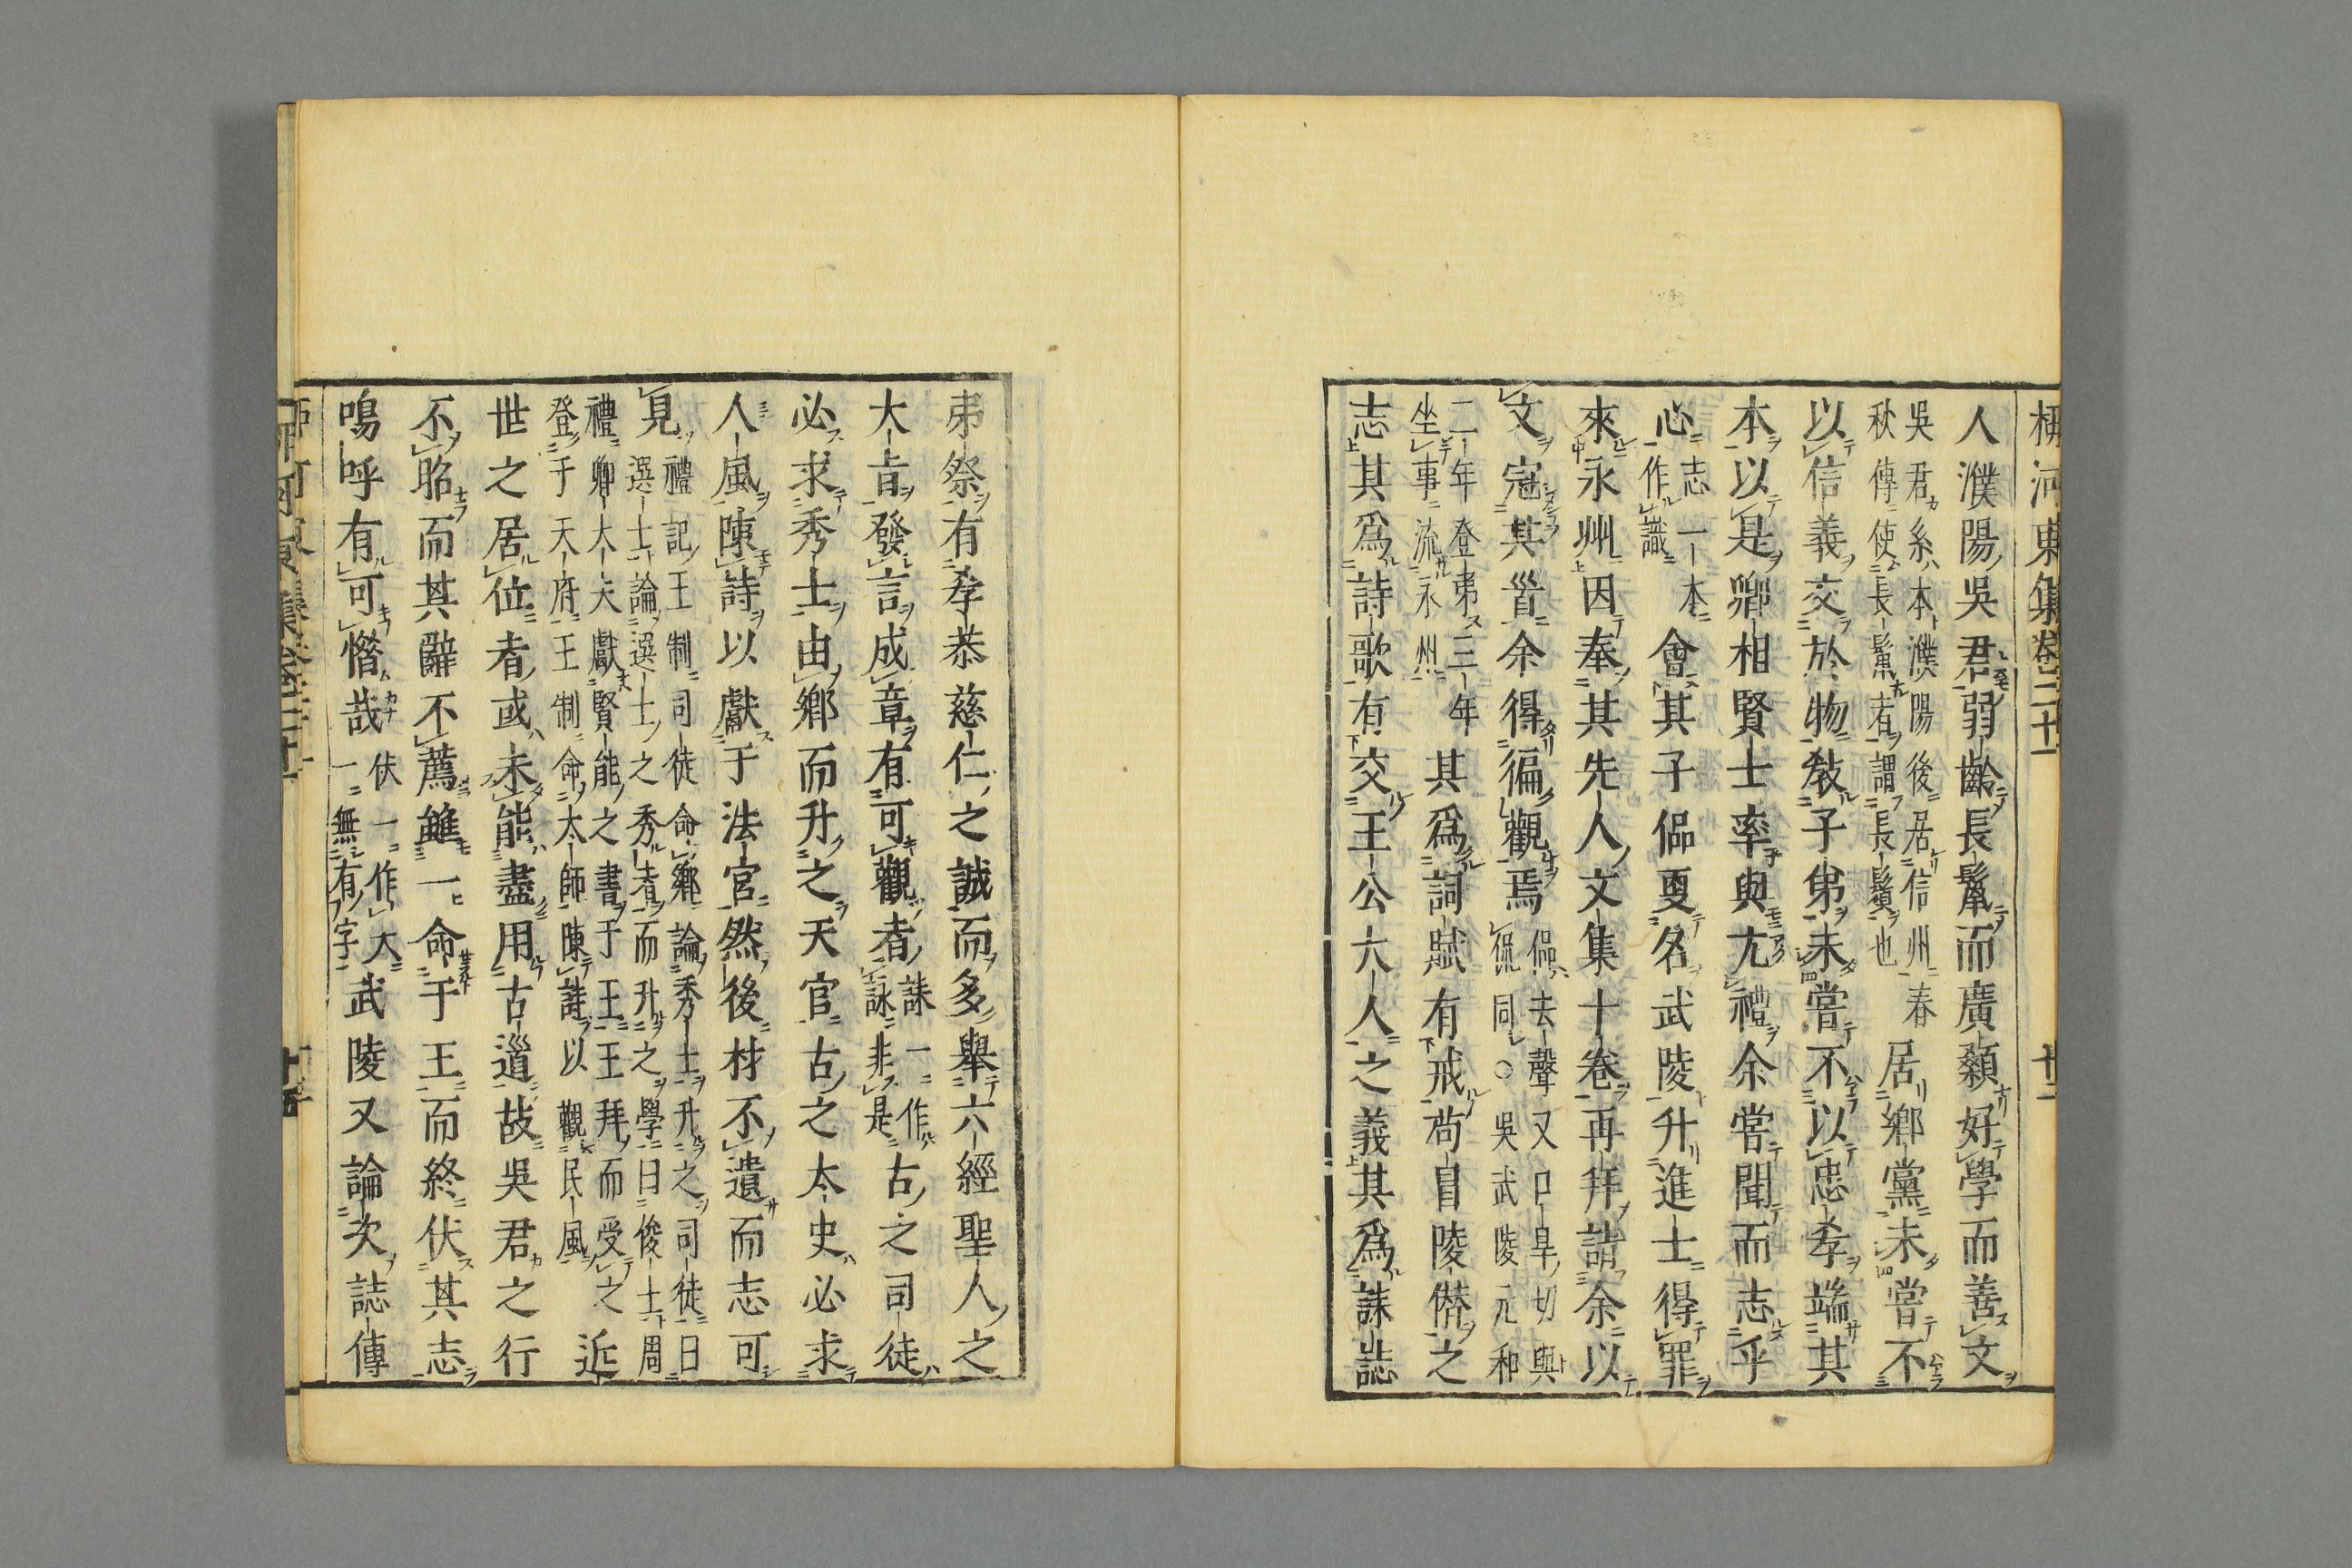 柳河東集卷二十一
人濮陽吳君弱齡長鬣而廣顙好學而善文
吳君系本濮陽後居信州春
秋傳使長鬣者謂長鬚也
居鄉黨未嘗不
以信義交於物敎子弟未嘗不以忠孝端其
本以是卿相賢士率與尢禮余嘗聞而志乎
心
志一本
作識
會其子偘更名武陵升進士得罪
來永州因奉其先人文集十卷再拜請余以
文冠其首余得徧觀焉
偘去聲又口旱切與
侃同○吳武陵元和
二年登弟三年
坐事流永州
其爲詞賦有戒苟冒陵僭之
志其爲詩歌有交王公大人之義其爲誄誌
弔祭有孝恭慈仁之誠而多舉六經聖人之
大㫖發言成章有可觀者
誄一作
詠非是
古之司徒
必求秀士由鄉而升之天官古之太史必求
人風陳詩以獻于法官然後材不遺而志可
見
禮記王制司徒命鄉論秀士升之司徒曰
選士論選士之秀者而升之學曰俊士周
禮卿大夫獻賢能之書于王王拜而受之
登于天府王制命太師陳詩以觀民風
近
世之居位者或未能盡用古道故吳君之行
不昭而其辭不薦雖一命于王而終伏其志
嗚呼有可惜哉
伏一作大
一無有字
武陵又論次誌傳